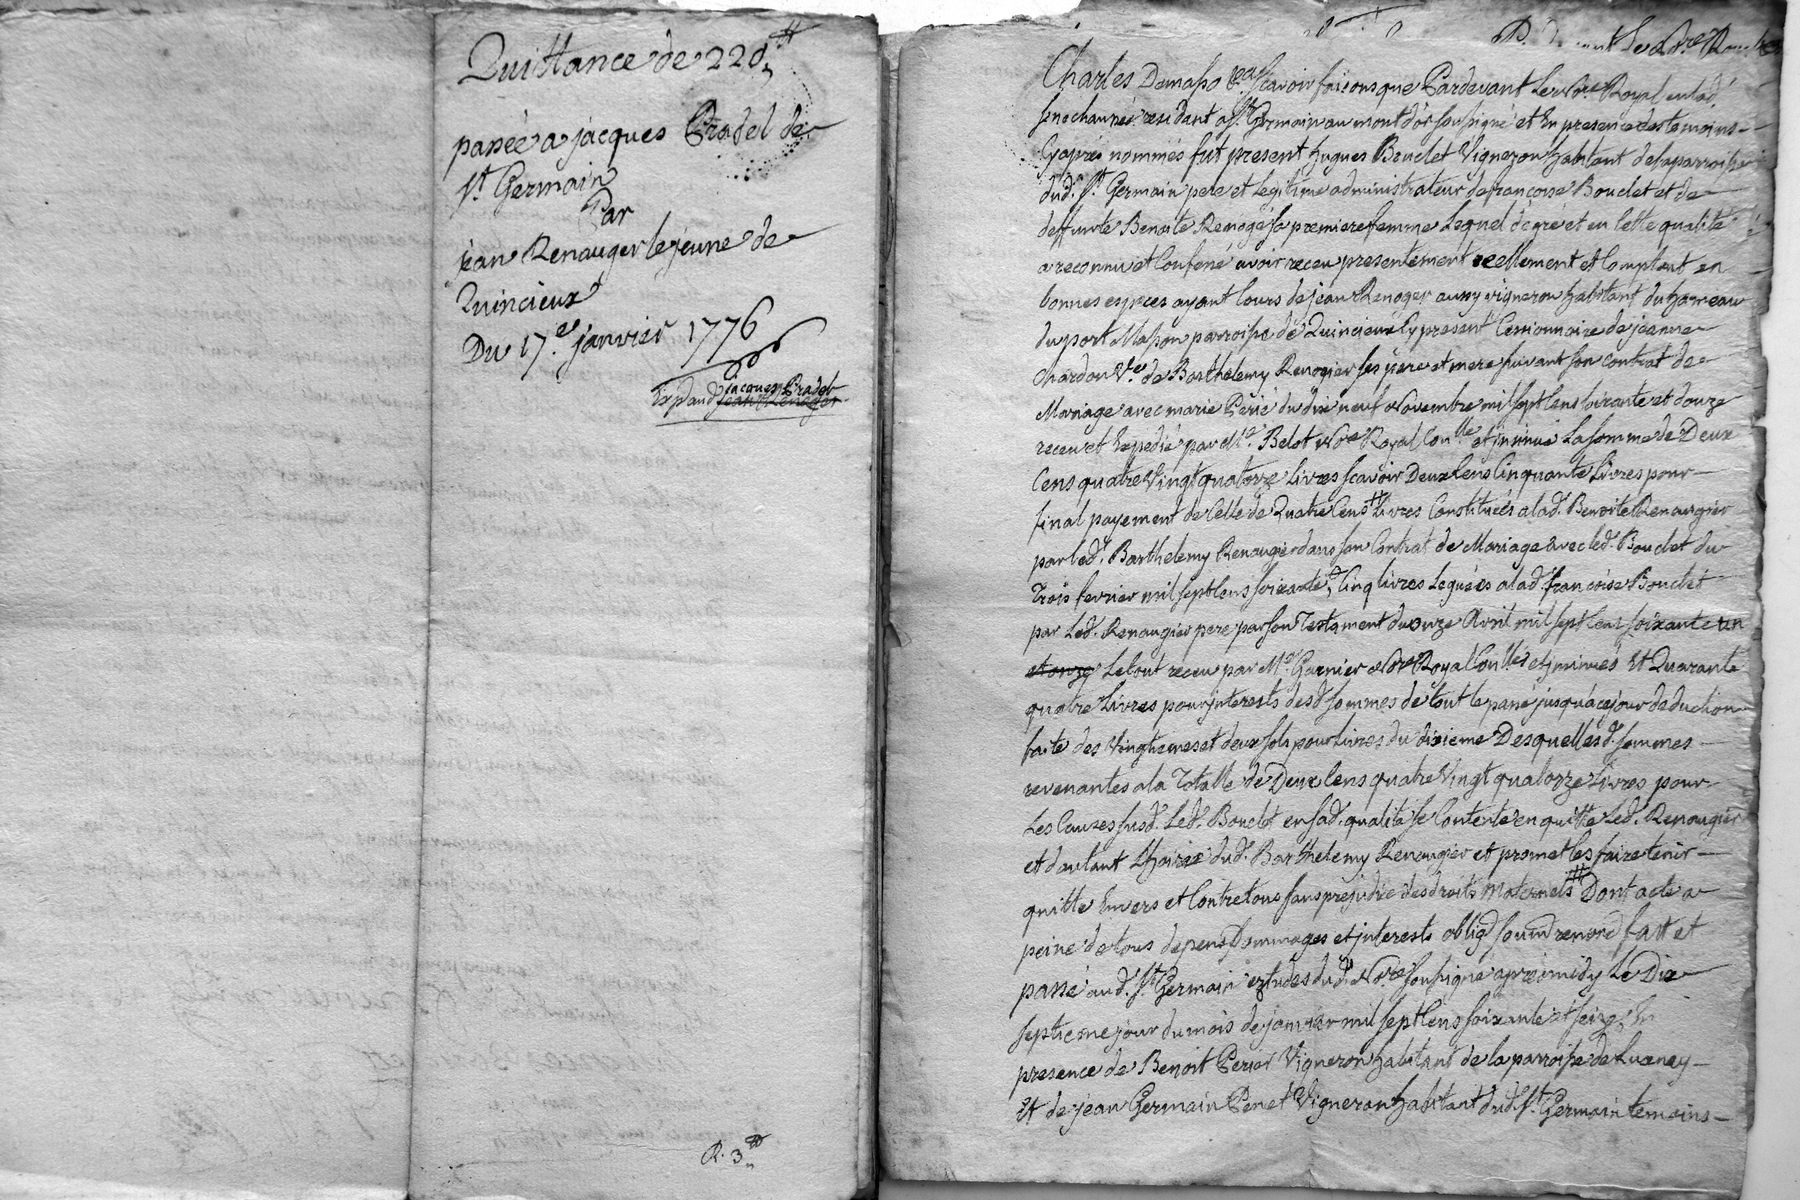 Quittance de 220 ₶
passée a jacques Pradel de
St. Germain
Par
jean Renauger le jeune de
Quincieux
Du 17.e janvier 1776
Exp aud jacques Pradel
jean Renoger
R. 3 ₶
Charles Demasso &a. scavoir faisons que Pardevant Le No.re Royal en lad.
senechaussée residant a St. Germain au mont d'or soussigné et En presence des temoins
Cyaprés nommés fut present hugues Bouclet Vigneron habitant de la parroisse
dud. St. Germain pere et Legitime administrateur de francoise Bouclet et de
deffunte Benoite Renoge sa premiere femme Lequel de gré et en Cette qualité
a reconnu et Confessé avoir receu presentement reellement et Comptant en
bonnes espèces ayant Cours de jean Renoger aussy vigneron habitant du hameau
du port Masson parroisse de Quincieux Cy present Cessionnaire de jeanne
Chardon V.e de Barthelemy Renogier ses père et mere suivant son contrat de
Mariage avec marie Perié du dix neuf Novembre mil sept Cens soixante et douze
receu et Expedié par M.e Belot No.re Royal Con.lle et insinué La somme de Deux
Cens quatre Vingt quatorze Livres scavoir Deux Cens Cinquante Livres pour
final payement de Celle de Quatre Cens Livres Constituées a lad. Benoite Renaugier
par led. Barthelemy Renaugier dans son Contrat de Mariage avec led. Bouclet du
Trois fevrier mil sept Cens soixante, Cinq livres Leguées a lad. francoise Bouclet
par Led. Renaugier pere par son Testament du onze Avril mil sept Cens soixante un
et onze Le tout receu par M.e Garnier No.re Royal Con.lles et insinués Et Quarante
quatre Livres pour interests desd. sommes de tout le passé jusqu'a ce jour deduction
faite des Vingtiemes et deux sols pour Livres du dixieme Desquelles d. sommes
revenantes a la Totalle de Deux Cens quatre Vingt quatorze Livres pour
Les Causes susd. Led. Bouclet en sad. qualité se Contente en quitte Led. Renaugier
et d'autant L'hoirie dud. Barthelemy Renaugier et promet les faire tenir
quitte Envers et Contre tous sans prejudice des droits Maternels Dont acte a
peine de tous depens Dommages et interests obligd soumd renond fait et
passé aud. St. Germain etudes dud. No.re soussigné après midy Le Dix
septiesme jour du mois de janvier mil sept Cens soixante et seize, En
presence de Benoit Perior Vigneron habitant de la parroisse de Lucenay
Et de jean Germain Penet Vigneron habitant dud. St. Germain temoins